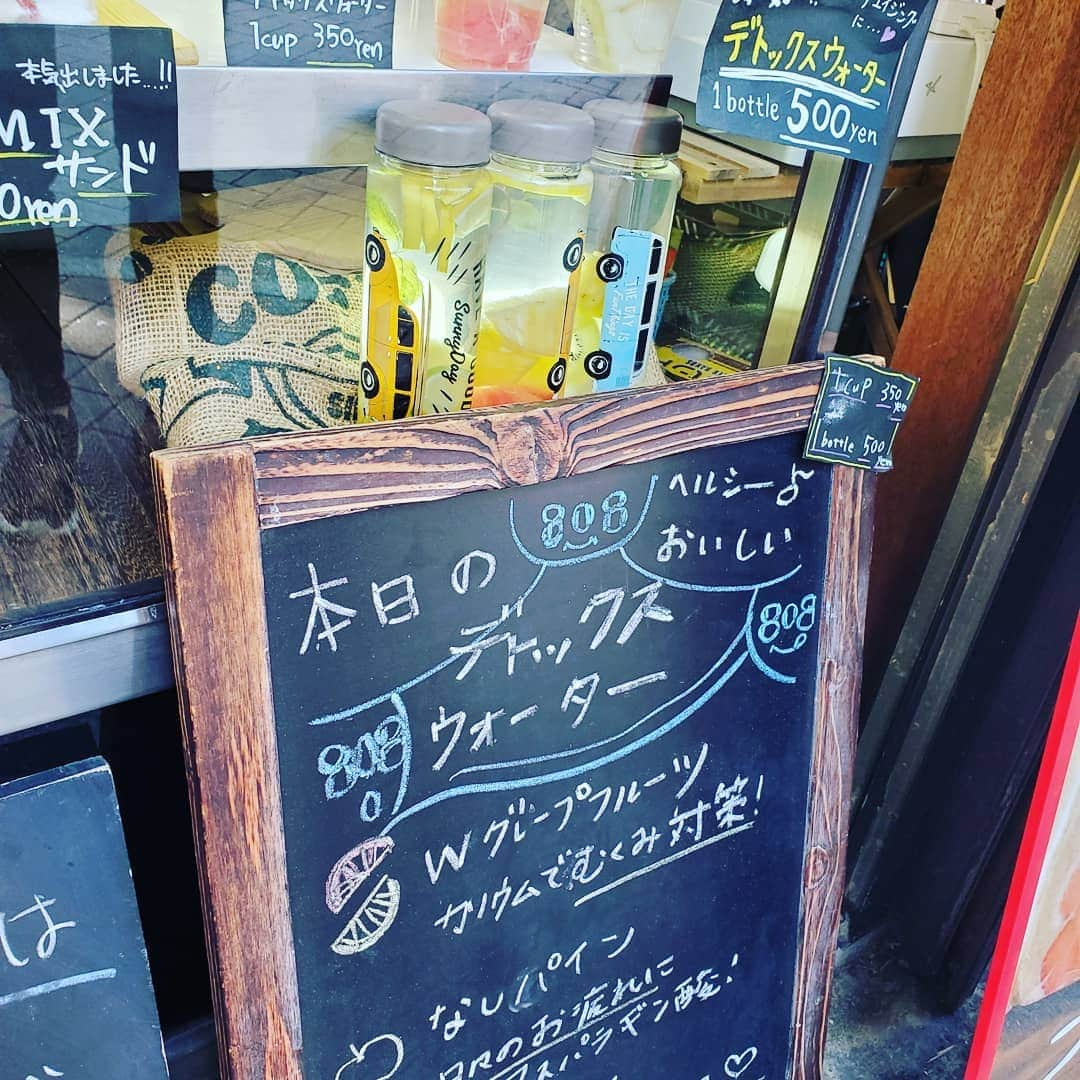 ウォーター
1cup 350yen
本気出しました...!!
MIX
サンド
0yen
エイジング
に...♥
デトックスウォーター
1bottle 500yen
SunnyDay
THE DAY IS
co
1cup 350yen
1bottle 500yen
808
ヘルシー♪
おいしい
本日の
デトックス
ウォーター
808
808
Wグレープフルーツ
カリウムでむくみ対策!
なし/パイン
日々のお疲れに
アスパラギン酸!
は